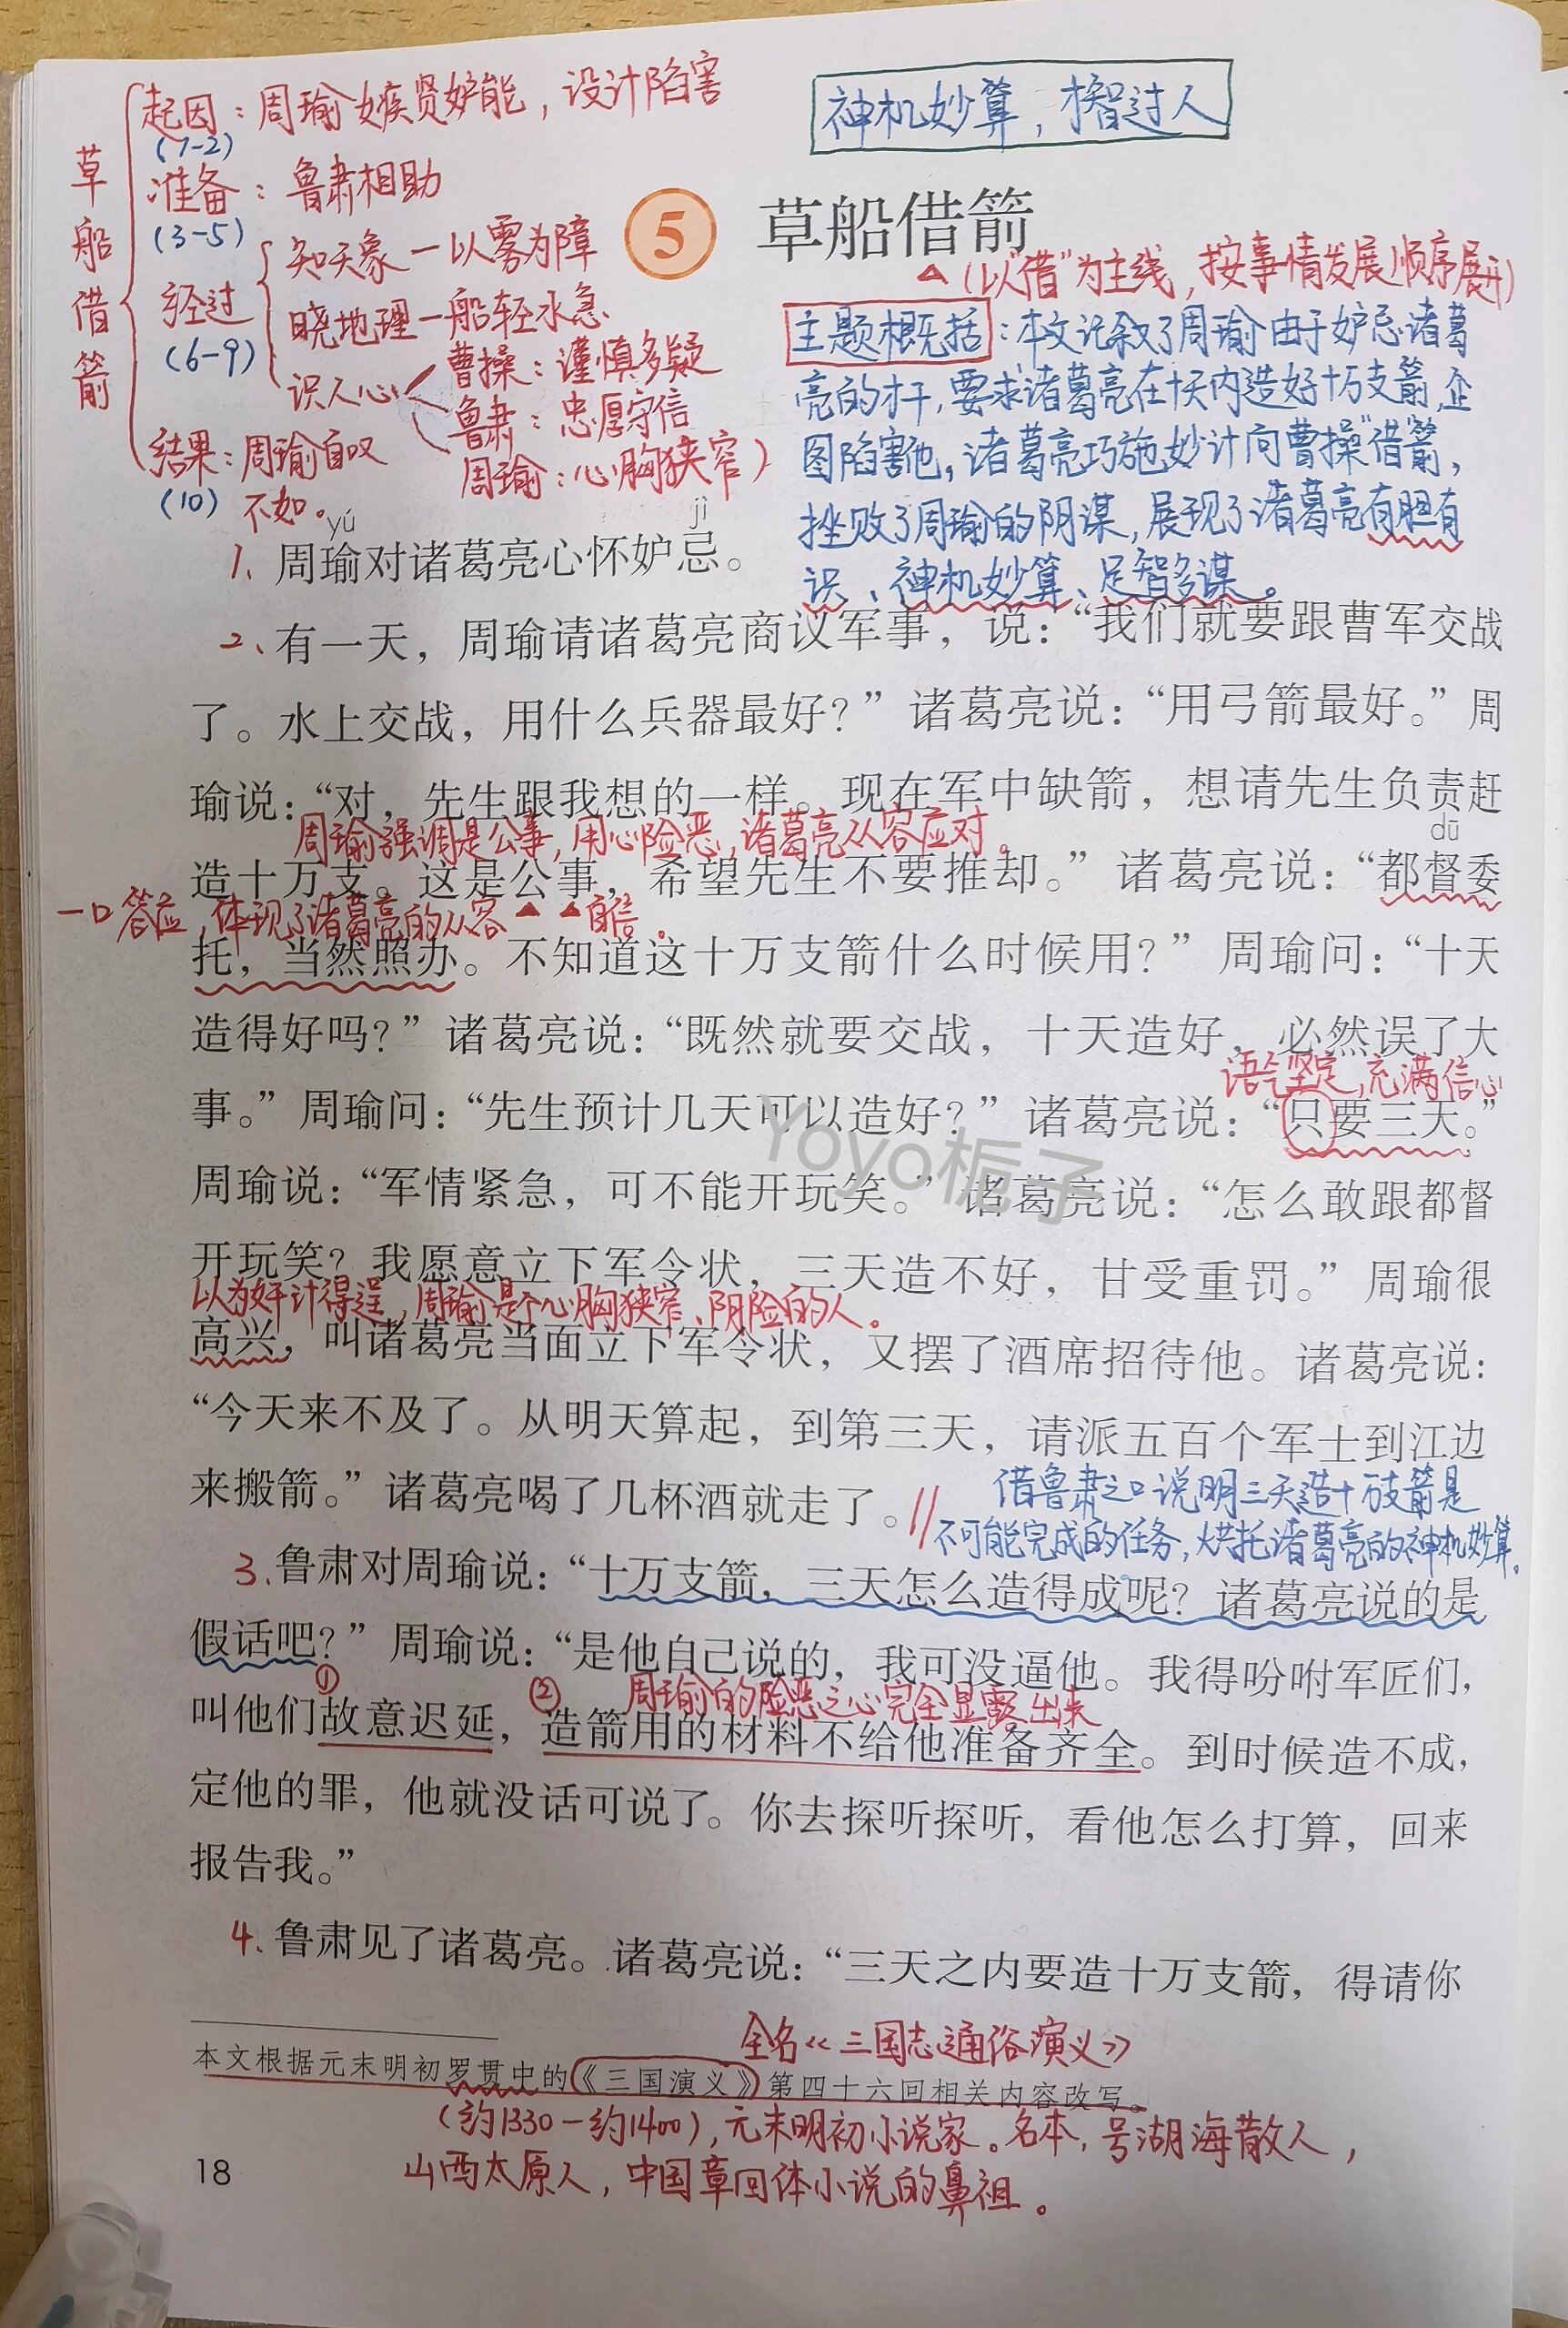 起因：周瑜嫉贤妒能，设计陷害
(1-2)
准备：鲁肃相助
(3-5)
草船借箭
经过
(6-9)
知天象—以雾为障
晓地理—船轻水急
识人心
曹操：谨慎多疑
鲁肃：忠厚守信
周瑜：心胸狭窄)
结果：周瑜自叹
(10) 不如。
神机妙算，才智过人
5 草船借箭
(以“借”为主线，按事情发展顺序展开)
主题概括：本文记叙了周瑜由于妒忌诸葛
亮的才干，要求诸葛亮在十天内造好十万支箭，企
图陷害他，诸葛亮巧施妙计向曹操“借”箭，
挫败了周瑜的阴谋，展现了诸葛亮有胆有
识、神机妙算、足智多谋。
yú jì
1、周瑜对诸葛亮心怀妒忌。
2、有一天，周瑜请诸葛亮商议军事，说：“我们就要跟曹军交战
了。水上交战，用什么兵器最好？”诸葛亮说：“用弓箭最好。”周
瑜说：“对，先生跟我想的一样。现在军中缺箭，想请先生负责赶
周瑜强调是公事，用心险恶，诸葛亮从容应对。
dū
造十万支。这是公事，希望先生不要推却。”诸葛亮说：“都督委
一口答应，体现了诸葛亮的从容 自信。
托，当然照办。不知道这十万支箭什么时候用？”周瑜问：“十天
造得好吗？”诸葛亮说：“既然就要交战，十天造好，必然误了大
语气坚定，充满信心
事。”周瑜问：“先生预计几天可以造好？”诸葛亮说：“只要三天。”
Yoyo栀子
周瑜说：“军情紧急，可不能开玩笑。”诸葛亮说：“怎么敢跟都督
开玩笑？我愿意立下军令状，三天造不好，甘受重罚。”周瑜很
以为奸计得逞，周瑜是个心胸狭窄、阴险的人。
高兴，叫诸葛亮当面立下军令状，又摆了酒席招待他。诸葛亮说：
“今天来不及了。从明天算起，到第三天，请派五百个军士到江边
来搬箭。”诸葛亮喝了几杯酒就走了。
借鲁肃之口说明三天造十万支箭是
不可能完成的任务，烘托诸葛亮的神机妙算。
3.鲁肃对周瑜说：“十万支箭，三天怎么造得成呢？诸葛亮说的是
假话吧？”周瑜说：“是他自己说的，我可没逼他。我得吩咐军匠们，
① ② 周瑜的险恶之心完全显露出来
叫他们故意迟延，造箭用的材料不给他准备齐全。到时候造不成，
定他的罪，他就没话可说了。你去探听探听，看他怎么打算，回来
报告我。”
4.鲁肃见了诸葛亮。诸葛亮说：“三天之内要造十万支箭，得请你
全名《三国志通俗演义》
本文根据元末明初罗贯中的《三国演义》第四十六回相关内容改写。
(约1330—约1400)，元末明初小说家。名本，号湖海散人，
山西太原人，中国章回体小说的鼻祖。
18